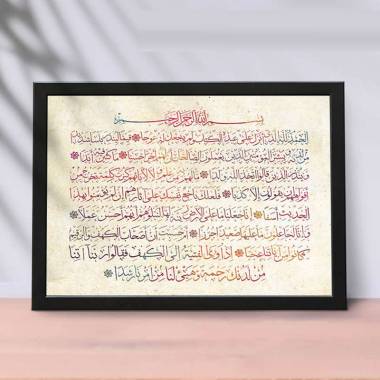 بسم الله الرحمن الرحيم
الحمد لله الذي أنزل على عبده الكتاب ولم يجعل له عوجا قيما لينذر بأسا شديدا
من لدنه ويبشر المؤمنين الذين يعملون الصالحات أن لهم أجرا حسنا ماكثين فيه أبدا
وينذر الذين قالوا اتخذ الله ولدا ما لهم به من علم ولا لآبائهم كبرت كلمة تخرج من
أفواههم إن يقولون إلا كذبا فلعلك باخع نفسك على آثارهم إن لم يؤمنوا بهذا
الحديث أسفا إنا جعلنا ما على الأرض زينة لها لنبلوهم أيهم أحسن عملا
وإنا لجاعلون ما عليها صعيدا جرزا أم حسبت أن أصحاب الكهف والرقيم
كانوا من آياتنا عجبا إذ أوى الفتية إلى الكهف فقالوا ربنا آتنا
من لدنك رحمة وهيئ لنا من أمرنا رشدا